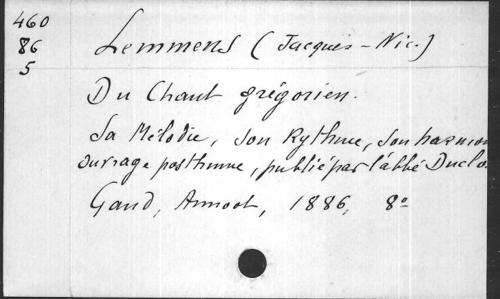 460
86
5
Lemmens (Jacques-Nic.)
Du Chant grégorien.
Sa Mélodie, son Rythme, son harmon
ouvrage posthume, publié par l'abbé Duclo
Gand, Annoot, 1886, 8º